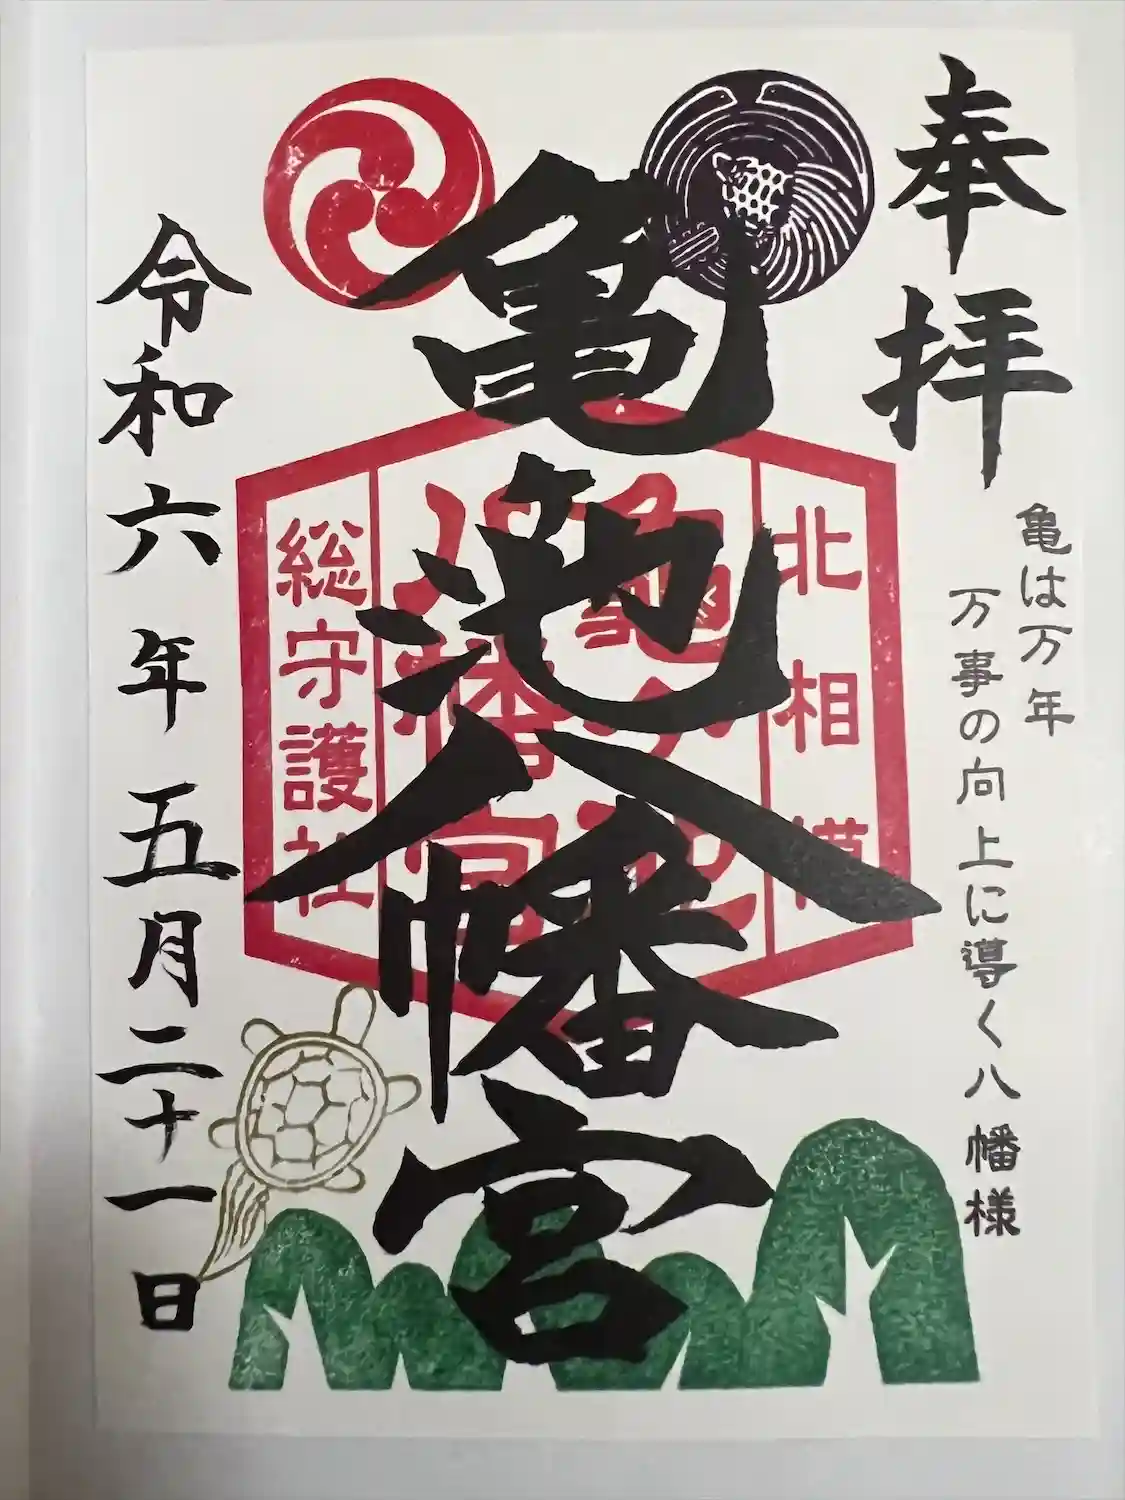 奉拝
亀は万年
万事の向上に導く八幡様
亀池八幡宮
北相模
総守護社
令和六年五月二十一日